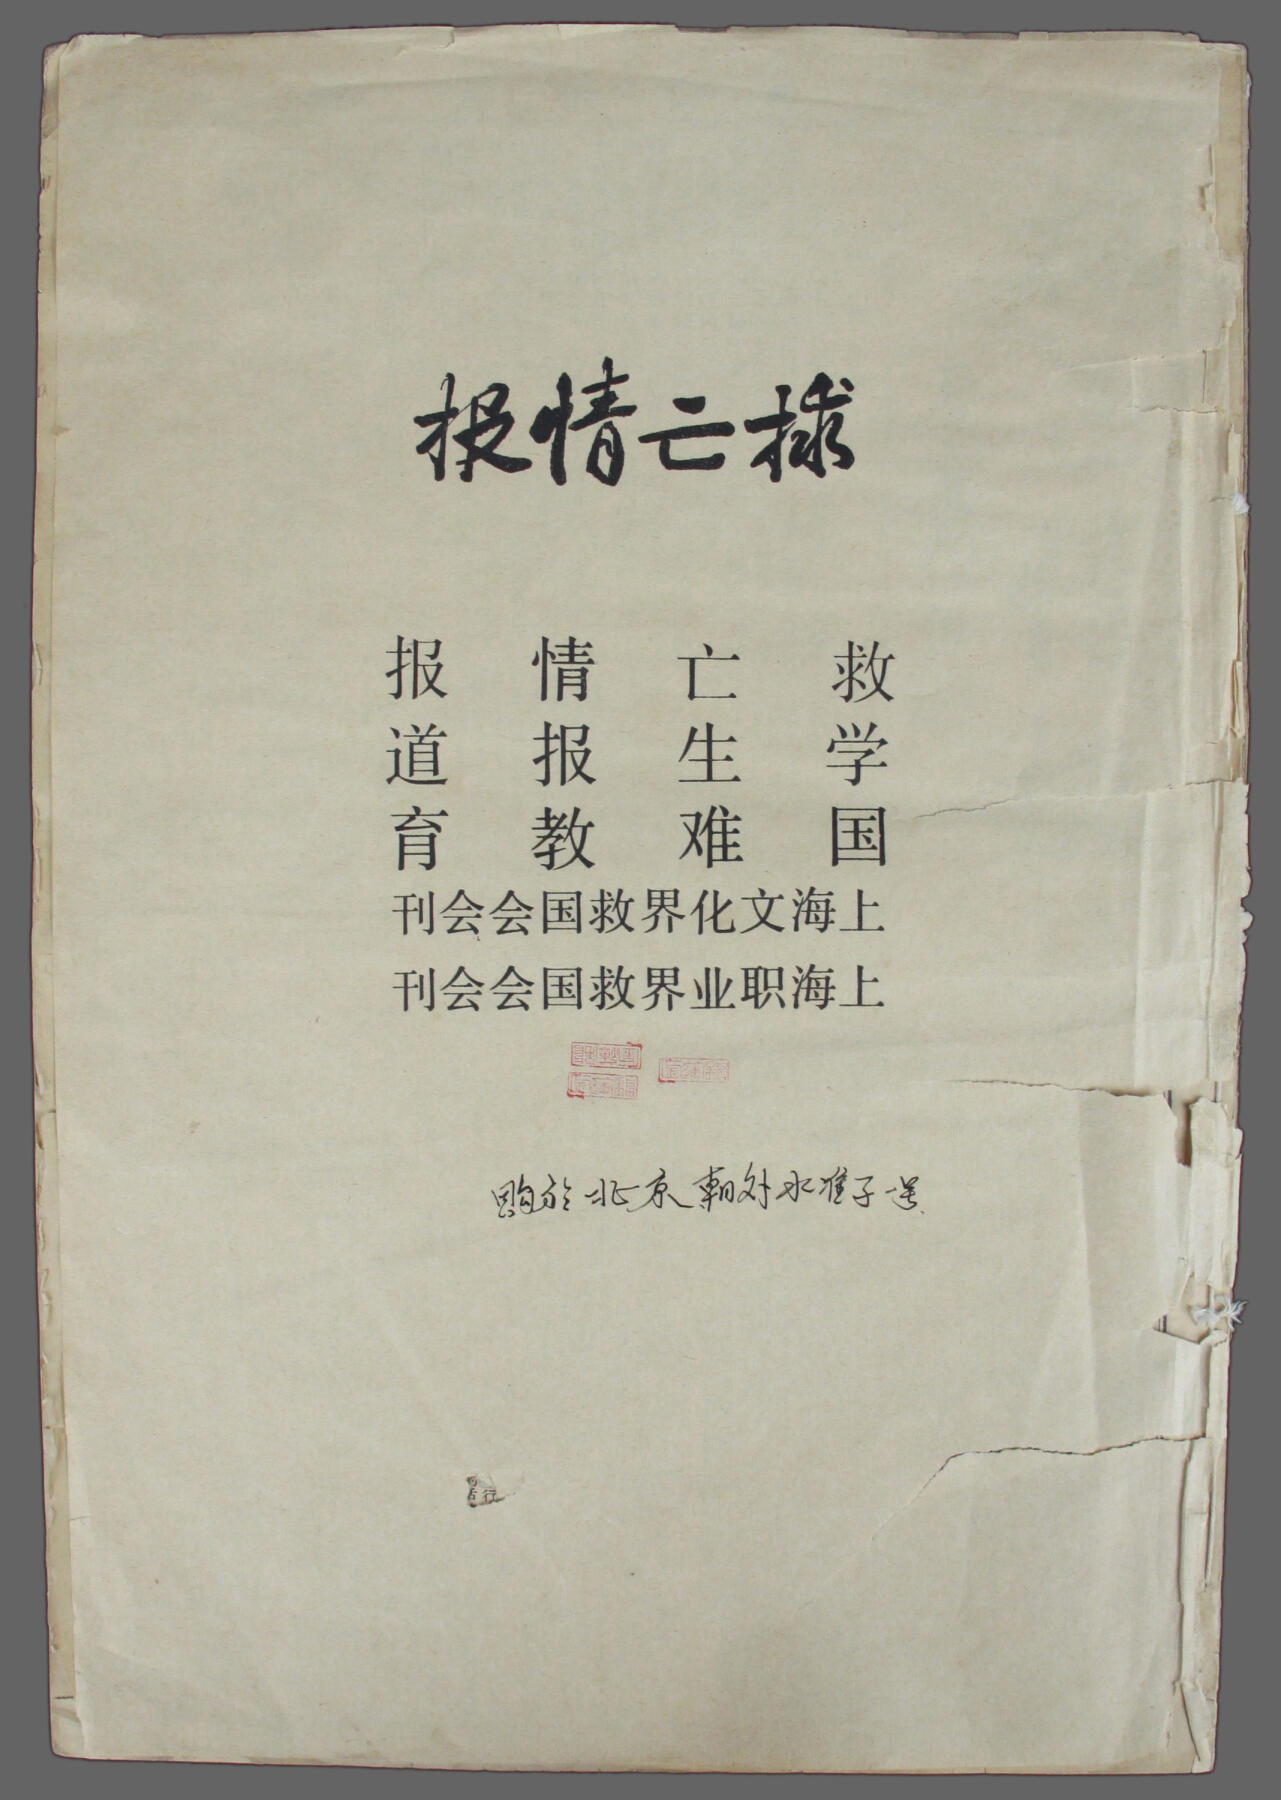 捄亡情报
救亡情报
学生报道
国难教育
上海文化界救国会会刊
上海职业界救国会会刊
购於北京朝外水准子
行